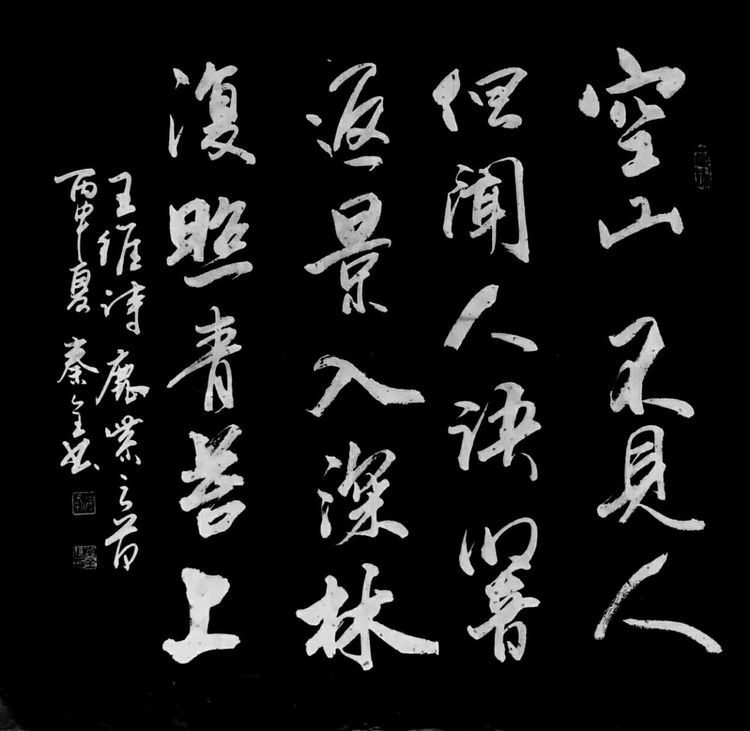 空山不見人
但聞人語響
返景入深林
復照青苔上
王維詩鹿柴之首
丙申夏 秦书